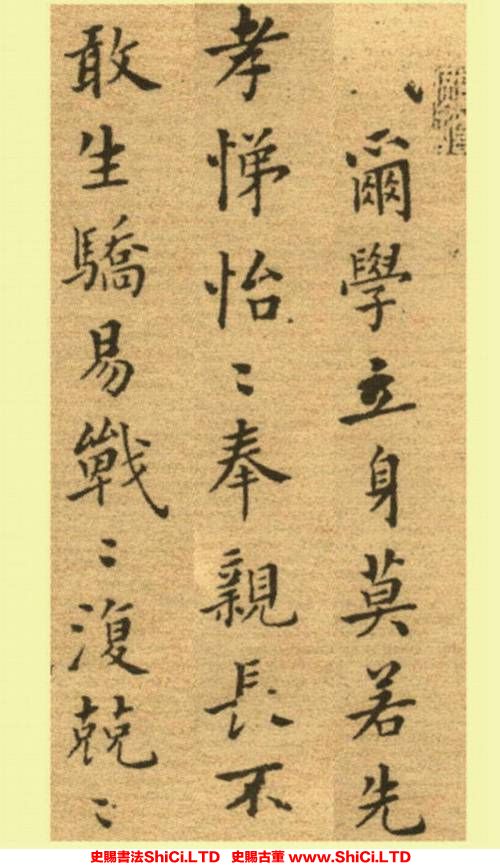 爾學立身莫若先
孝悌怡〻奉親長不
敢生驕易戰〻復兢〻
史賜書法ShiCi.LTD 史賜古董 www.ShiCi.LTD